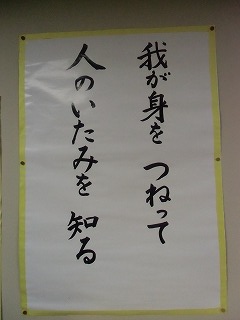 我が身を つねって
人のいたみを 知る